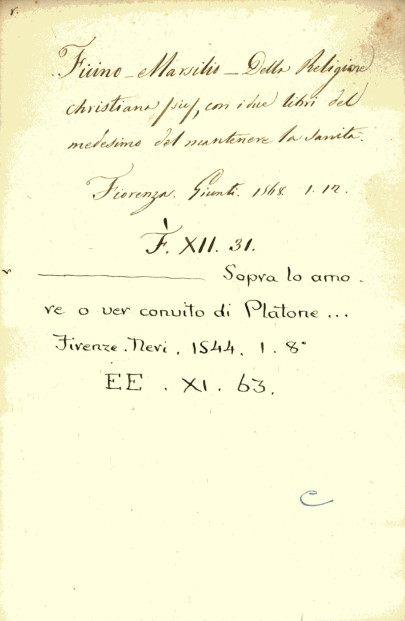 r.
Ficino - Marsilio - Della Religione
christiana (sic), con i due libri del
medesimo del mantenere la sanità.
Fiorenza. Giunti. 1568. 1. 12.
F. XII. 31.
Sopra lo amo-
re o ver convito di Platone...
Firenze. Neri. 1544. 1. 8°
EE. XI. 63.
C